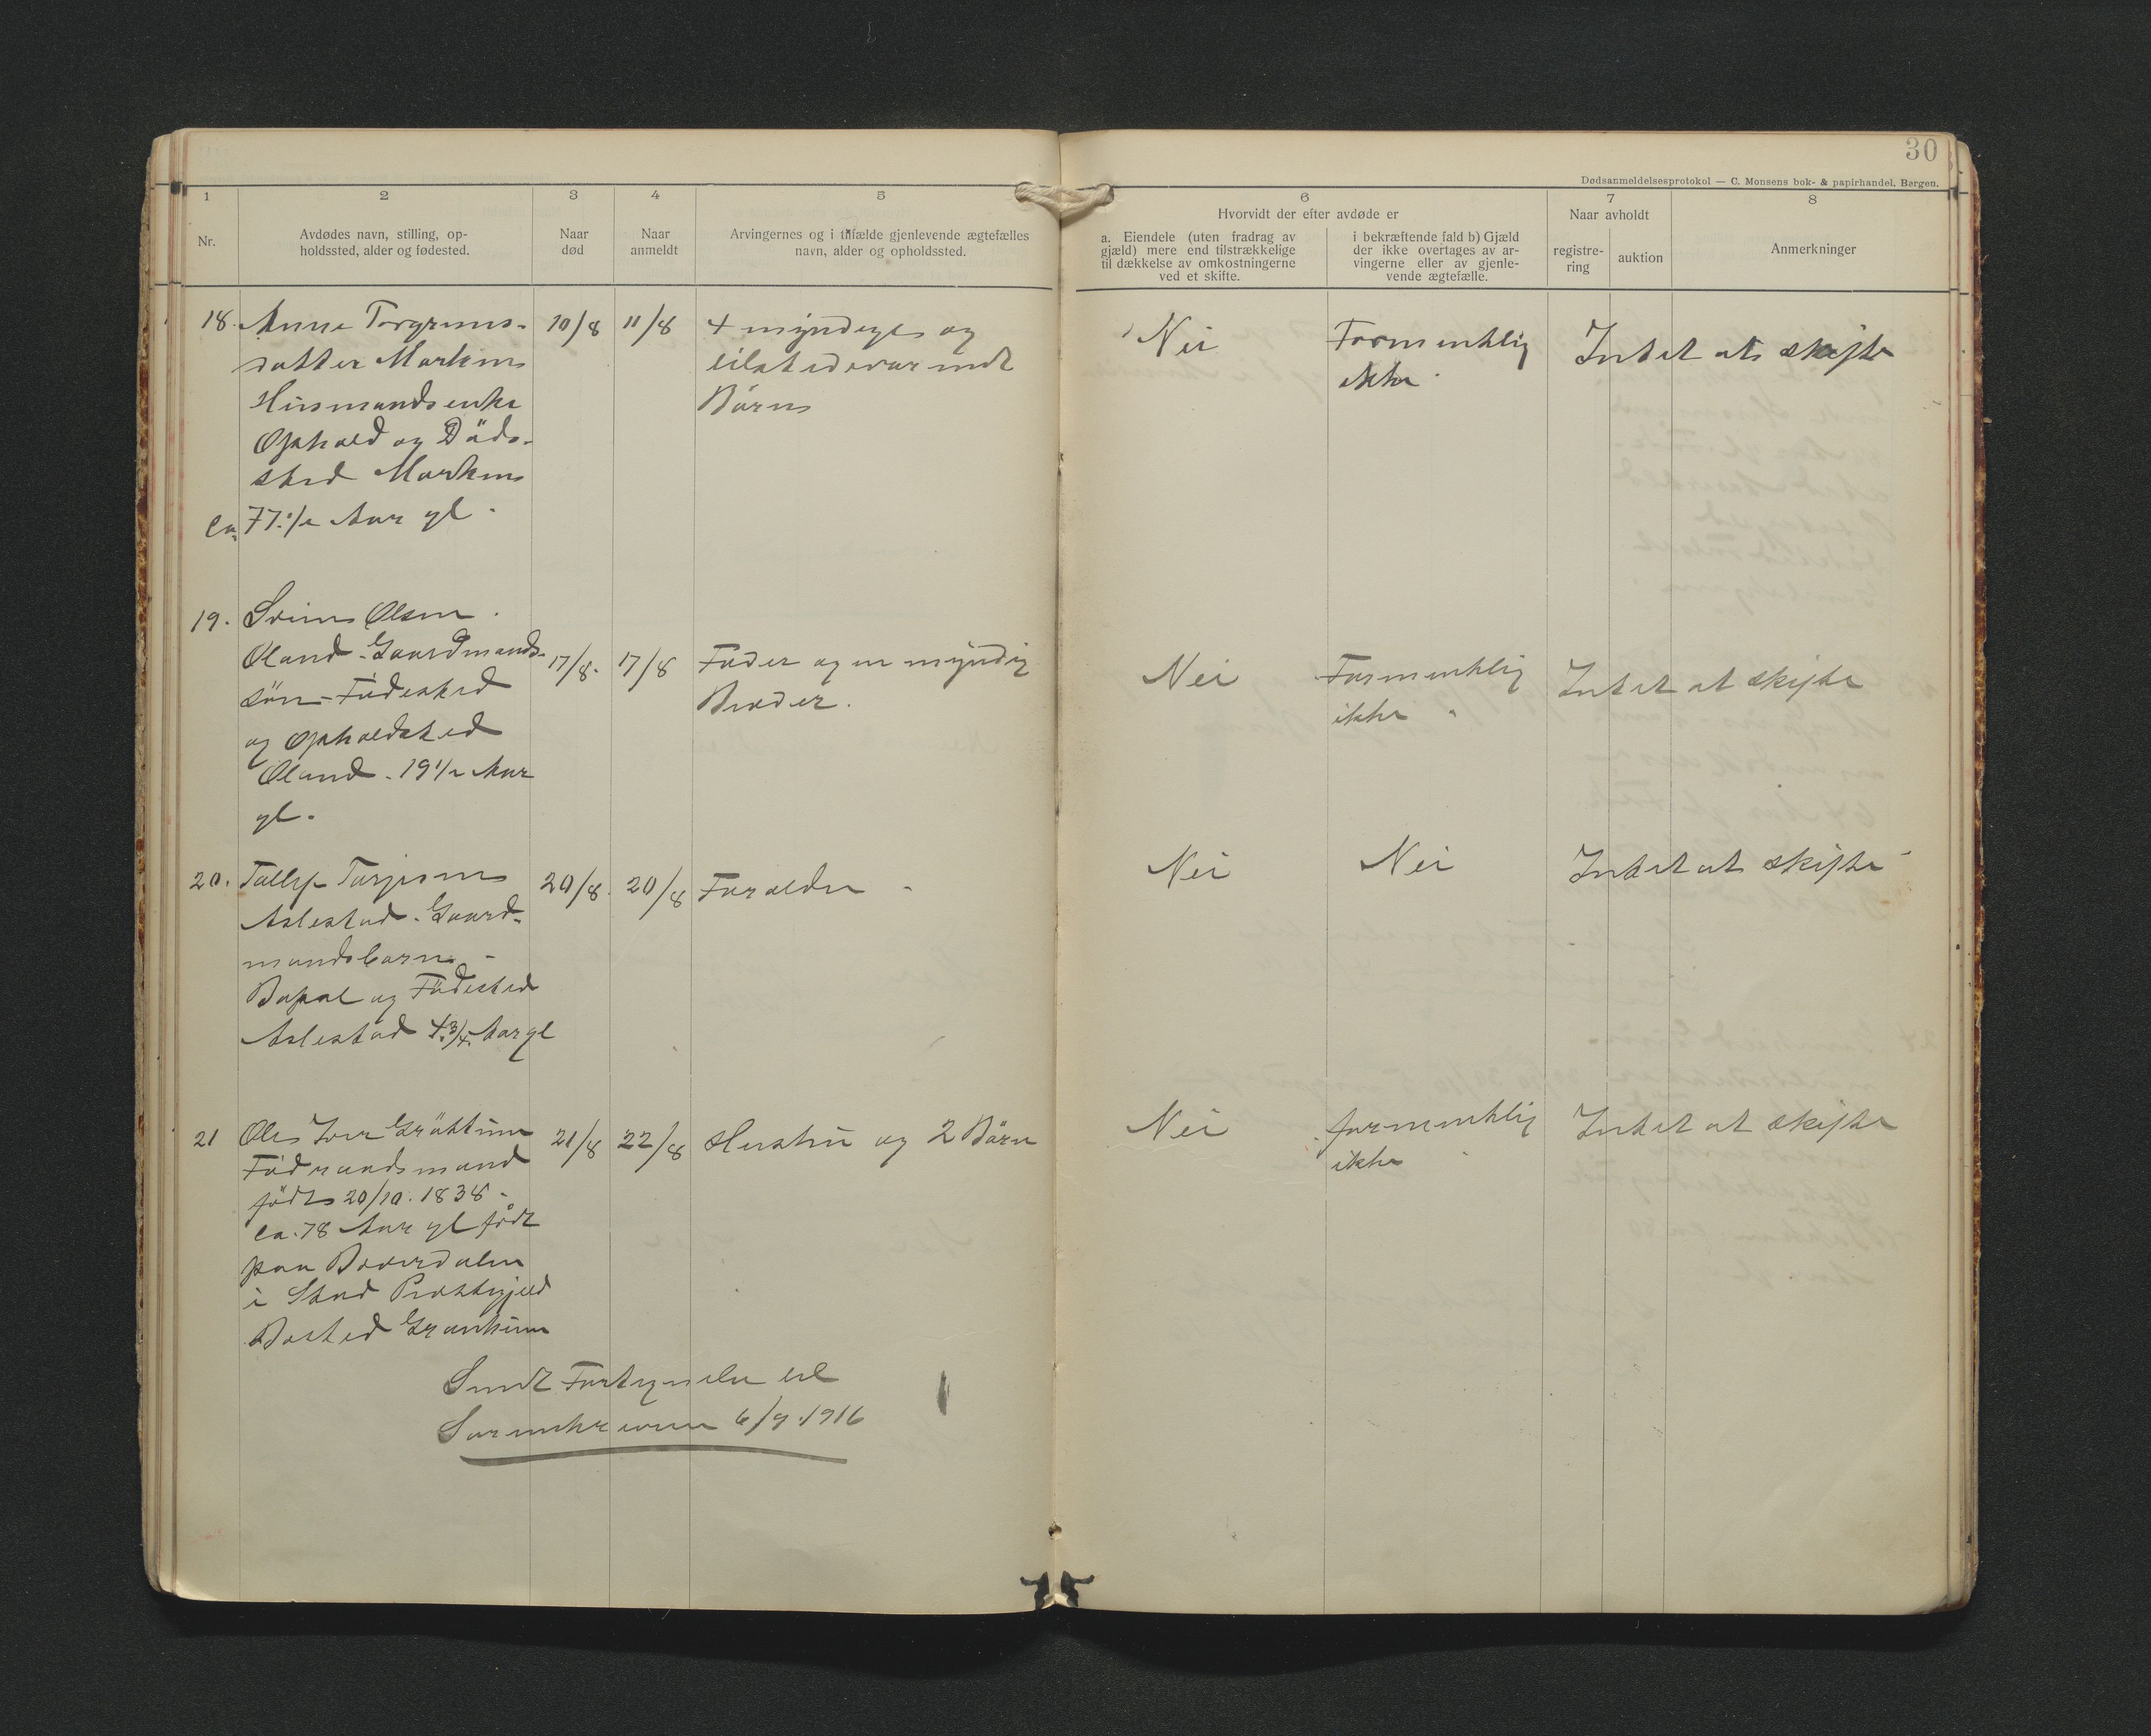 30
Dødsanmeldelsesprotokol — C. Monsens bok- & papirhandel, Bergen.
1
2
3
4
5
6
7
8
Nr.
Avdødes navn, stilling, op-
holdssted, alder og fødested.
Naar
død
Naar
anmeldt
Arvingernes og i tilfælde gjenlevende ægtefælles
navn, alder og opholdssted.
Hvorvidt der efter avdøde er
a. Eiendele (uten fradrag av
gjæld) mere end tilstrækkelige
til dækkelse av omkostningerne
ved et skifte.
i bekræftende fald b) Gjæld
der ikke overtages av ar-
vingerne eller av gjenle-
vende ægtefælle.
Naar avholdt
registre-
ring
auktion
Anmerkninger
18. Anne Torgrims- 10/8 11/8 4 myndige og
datter Morkens
tilstedeværendt
Husmandsenke
Börn
Ophold og Döds-
sted Morkens
ca. 77 1/2 Aar gl.
Nei Formentlig Intet at skifte
ikke
19. Svein Olsen
Öland - Gaardmands- 17/8. 17/8 Fader og en myndig
sön - Födested
Broder.
og Opholdsted
Öland. 19 1/2 Aar
gl.
Nei Formentlig Intet at skifte
ikke
20. Tallef Torjesen 20/8. 20/8 Foraldre
Aslestad. Gaard-
mandsbarn -
Bopæl og Födested
Aslestad 4 3/4 Aar gl
Nei Nei Intet at skifte
21 Ole 21/8 22/8 Hustru og 2 Börn
födt 20/10. 1838 -
ca. 78 Aar gl födt
paa
i Stod Prestegjeld
Bosted
Nei formentlig Intet at skifte
ikke
Sendt Fortegnelse til
Sorenskriveren 6/9 1916